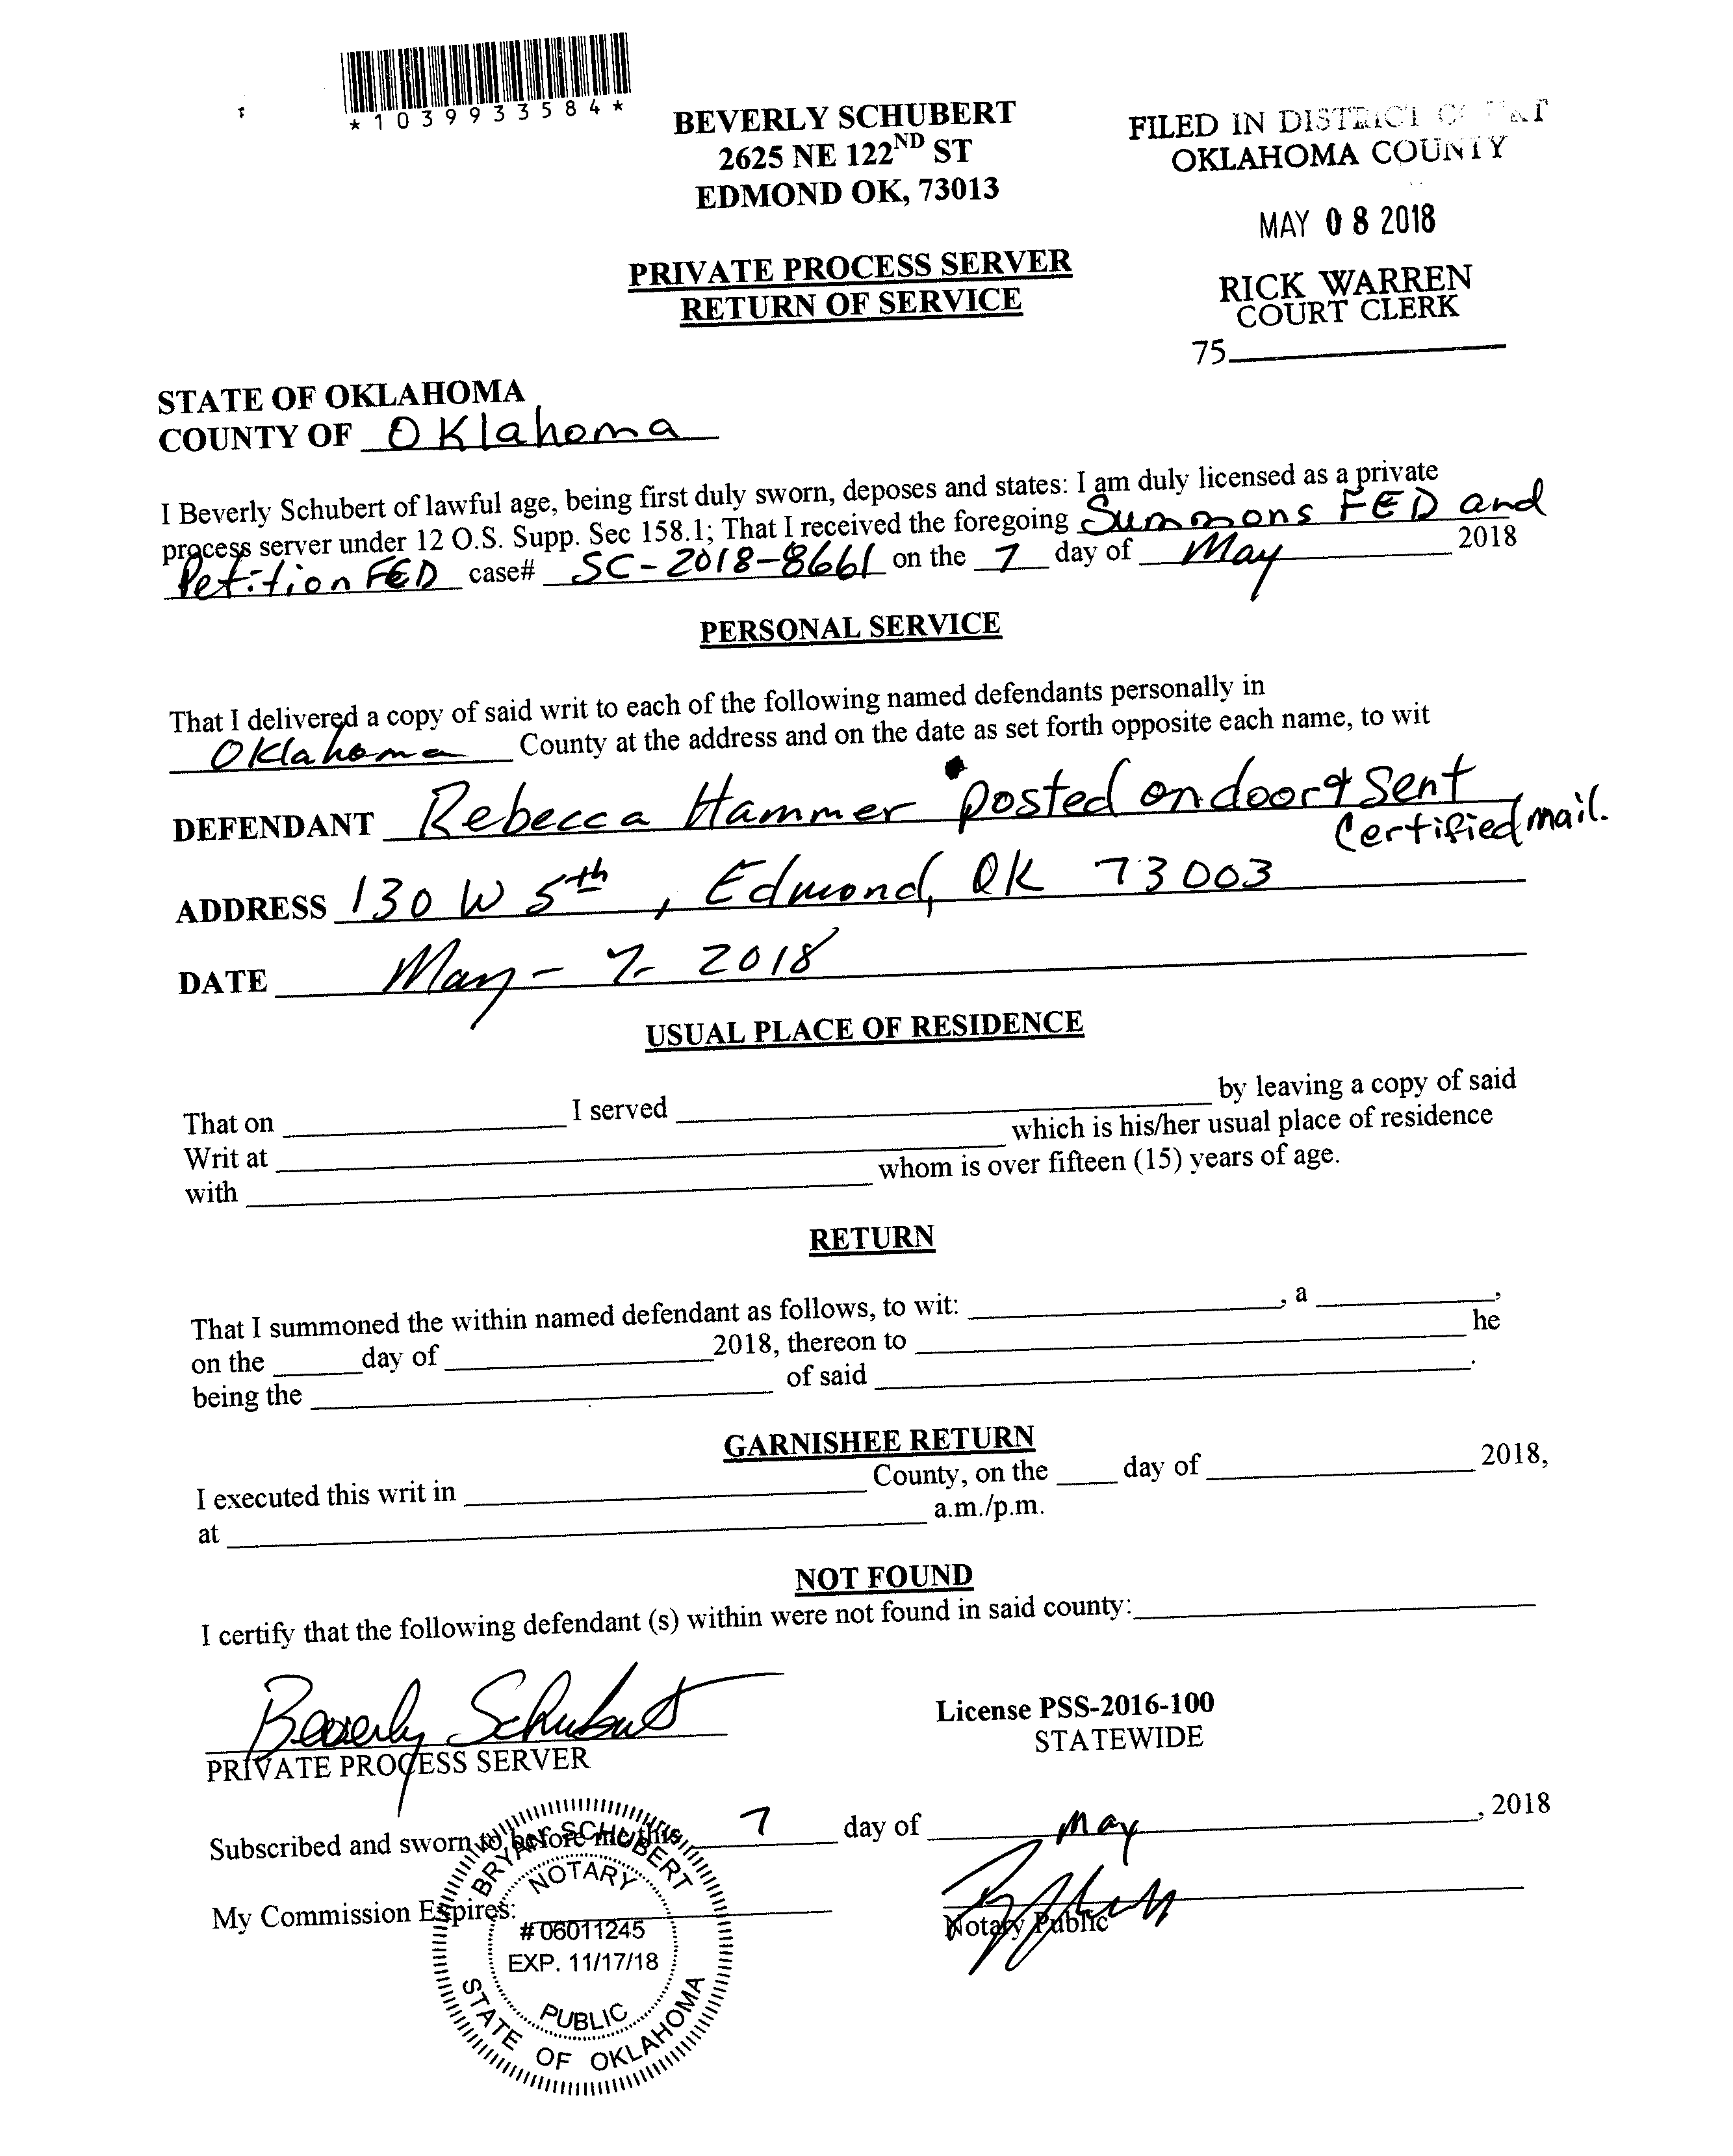 *1039933584*
BEVERLY SCHUBERT
2625 NE 122ND ST
EDMOND OK, 73013
FILED IN DISTRICT COURT
OKLAHOMA COUNTY
MAY 08 2018
RICK WARREN
COURT CLERK
75
PRIVATE PROCESS SERVER
RETURN OF SERVICE
STATE OF OKLAHOMA
COUNTY OF Oklahoma
I Beverly Schubert of lawful age, being first duly sworn, deposes and states: I am duly licensed as a private
process server under 12 O.S. Supp. Sec 158.1; That I received the foregoing Summons FED and
Petition FED case# SC-2018-8661 on the 7 day of May 2018
PERSONAL SERVICE
That I delivered a copy of said writ to each of the following named defendants personally in
Oklahoma County at the address and on the date as set forth opposite each name, to wit
DEFENDANT Rebecca Hammer posted on door & Sent
Certified mail.
ADDRESS 130 W 5th, Edmond, OK 73003
DATE May - 7 - 2018
USUAL PLACE OF RESIDENCE
That on I served by leaving a copy of said
Writ at which is his/her usual place of residence
with whom is over fifteen (15) years of age.
RETURN
That I summoned the within named defendant as follows, to wit: , a ,
on the day of 2018, thereon to he
being the of said .
GARNISHEE RETURN
I executed this writ in County, on the day of 2018,
at a.m./p.m.
NOT FOUND
I certify that the following defendant (s) within were not found in said county:
Beverly Schubert
PRIVATE PROCESS SERVER
License PSS-2016-100
STATEWIDE
Subscribed and sworn to before me this 7 day of May , 2018
My Commission Expires:
Notary Public
BRYAN SCHUBERT
NOTARY
# 06011245
EXP. 11/17/18
PUBLIC
STATE OF OKLAHOMA